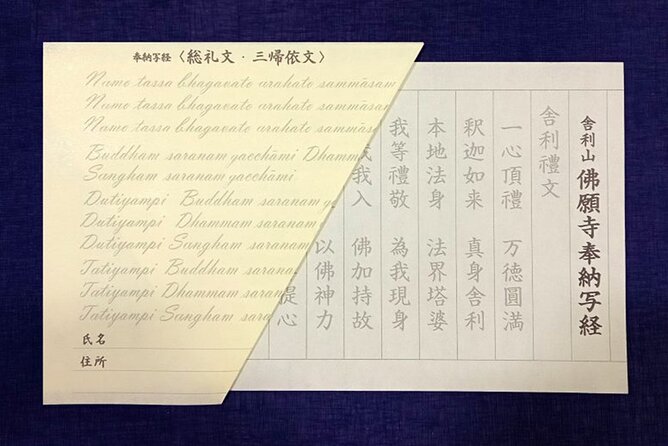 奉納写経〈総礼文・三帰依文〉
Namo tassa bhagavato arahato sammāsam
Namo tassa bhagavato arahato sammāsam
Namo tassa bhagavato arahato sammās
Buddham saranam gacchāmi Dhamm
Sangham saranam gacchāmi
Dutiyampi Buddham saranam g
Dutiyampi Dhammam saranam
Dutiyampi Sangham saranam
Tatiyampi Buddham saran
Tatiyampi Dhammam saran
Tatiyampi Sangham sara
氏名
住所
舎利山 佛願寺奉納写経
舎利禮文
一心頂禮 万徳圓満
釈迦如来 真身舎利
本地法身 法界塔婆
我等禮敬 為我現身
我入 佛加持故
以佛神力
提心